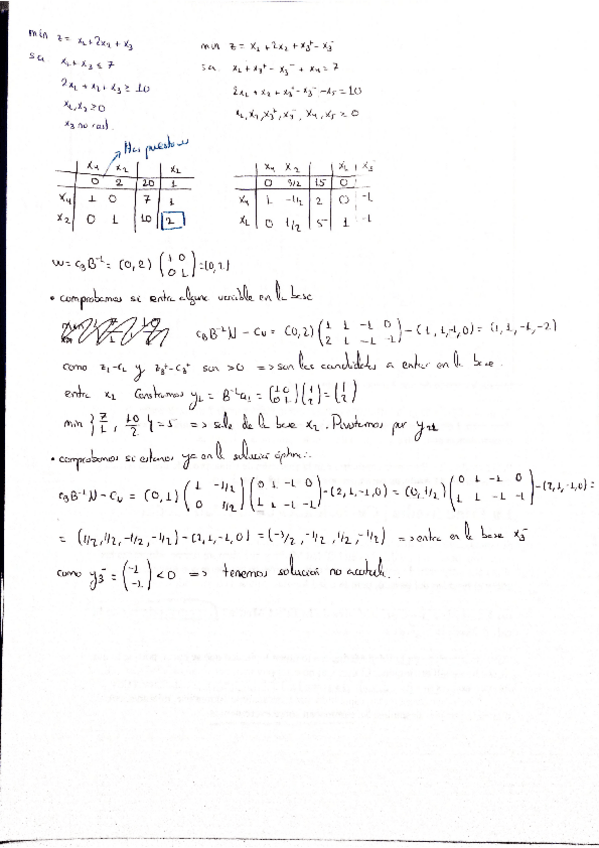 min z = x₁+2x₂+x₃
min z = x₁+2x₂+x₃⁺-x₃⁻
s.a. x₁+x₃ ≤ 7
s.a. x₁+x₃⁺-x₃⁻+x₄=7
2x₁+x₂+x₃ ≥ 10
2x₁+x₂+x₃⁺-x₃⁻-x₅=10
x₁,x₂ ≥0
x₁,x₂,x₃⁺,x₃⁻, x₄,x₅ ≥ 0
x₃ no rest.
x₄ x₂ x₁
0 2 20 1
x₄ 1 0 7 1
x₂ 0 1 10 2
x₄ x₂ x₁ x₃⁻
0 3/2 15 0
x₄ 1 -1/2 2 0 -1
x₁ 0 1/2 5 1 -1
w = c_B B⁻¹ = (0,2) (1 0
0 1) =(0,2)
• comprobamos si entra alguna variable en la base
c_B B⁻¹N - c_N = (0,2) (1 1 -1 0
2 1 -1 -1) - (1,1,-1,0) = (1,1,-1,-2)
como z₁-c₁ y z₃⁺-c₃⁺ son >0 => son los candidatos a entrar en la base.
entra x₁ Construimos y₁ = B⁻¹a₁ = (1 0
0 1) (1
2) = (1
2)
min {7/1, 10/2} =5 => sale de la base x₂. Pivotamos por y₂₁
• comprobamos si estamos ya en la solución óptima:
c_B B⁻¹N - c_N = (0,1) (1 -1/2
0 1/2) (0 1 -1 0
1 1 -1 -1) -(2,1,-1,0) = (0,1/2) (0 1 -1 0
1 1 -1 -1) -(2,1,-1,0) =
= (1/2,1/2,-1/2,-1/2) -(2,1,-1,0) = (-3/2,-1/2,1/2,-1/2) => entra en la base x₃⁻
como y₃⁻ = (-1
-1) <0 => tenemos solución no acotada.